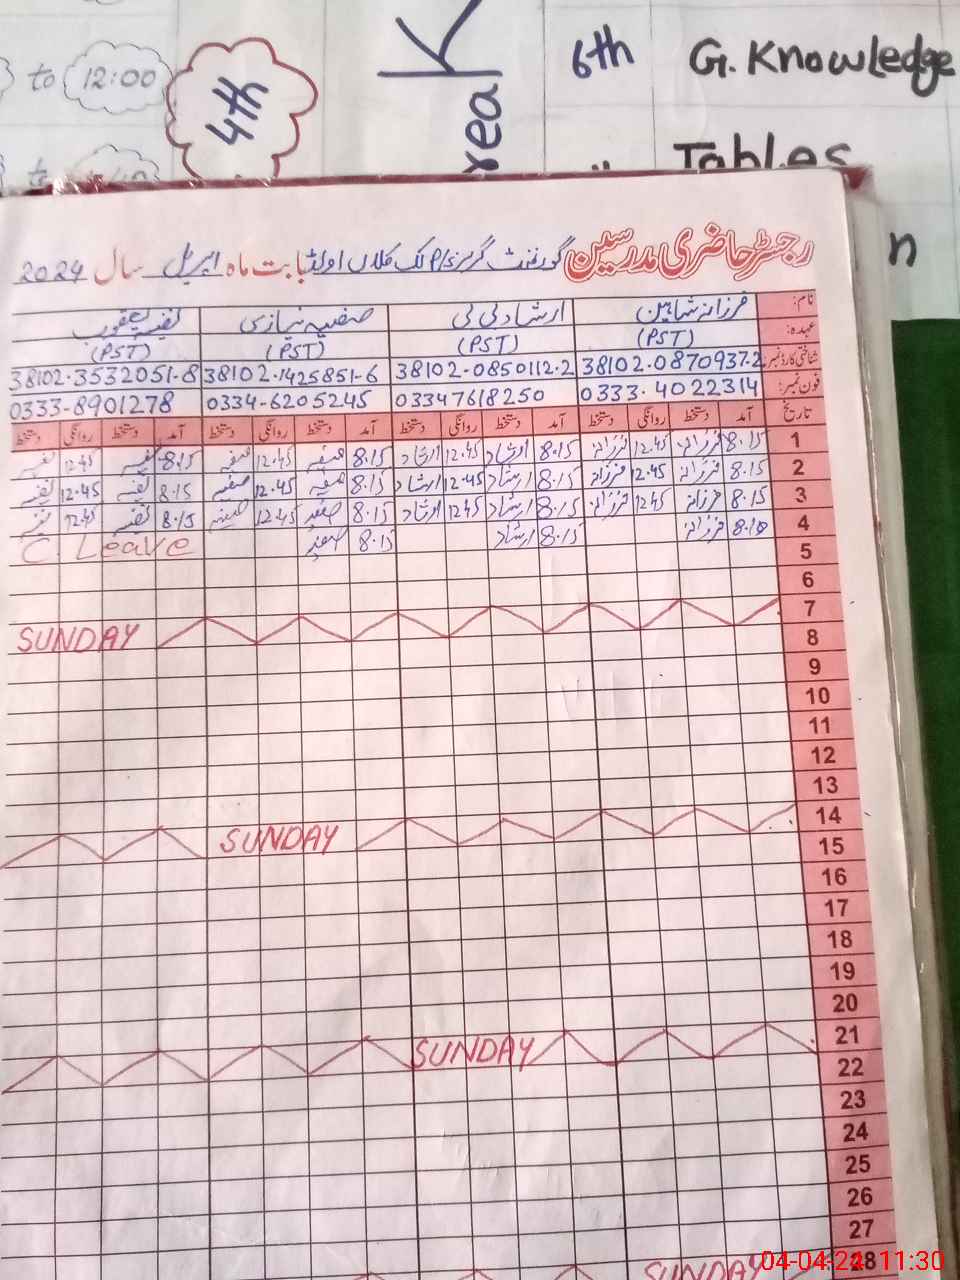 to 12:00
4th
K
rea
6th G. Knowledge
Tables
n
رجسٹر حاضری مدرسین گورنمنٹ گرلز P/S کلاں اولڈ بابت ماہ اپریل سال 2024
نام: فرزانہ شاہین ارشاد بی بی صفیہ نیازی نفیسہ یعقوب
عہدہ: (PST) (PST) (PST) (PST)
شناختی کارڈ نمبر: 38102-0870937-2 38102-0850112-2 38102-1425851-6 38102-3532051-8
فون نمبر: 0333-4022314 03347618250 0334-6205245 0333-8901278
تاریخ آمد دستخط روانگی دستخط آمد دستخط روانگی دستخط آمد دستخط روانگی دستخط آمد دستخط روانگی دستخط
1 8.15 فرزانہ 12.45 فرزانہ 8.15 ارشاد 12.45 ارشاد 8.15 صفیہ 12.45 صفیہ 8.15 نفیسہ 12.45
2 8.15 فرزانہ 12.45 فرزانہ 8.15 ارشاد 12.45 ارشاد 8.15 صفیہ 12.45 صفیہ 8.15 نفیسہ 12.45 نفیسہ
3 8.15 فرزانہ 12.45 فرزانہ 8.15 ارشاد 12.45 ارشاد 8.15 صفیہ 12.45 صفیہ 8.15 نفیسہ 12.45
4 8.15 فرزانہ 8.15 ارشاد 8.15 صفیہ C Leave
5
6
7 SUNDAY
8
9
10
11
12
13
14 SUNDAY
15
16
17
18
19
20
21 SUNDAY
22
23
24
25
26
27
28 SUNDAY
04-04-24 11:30